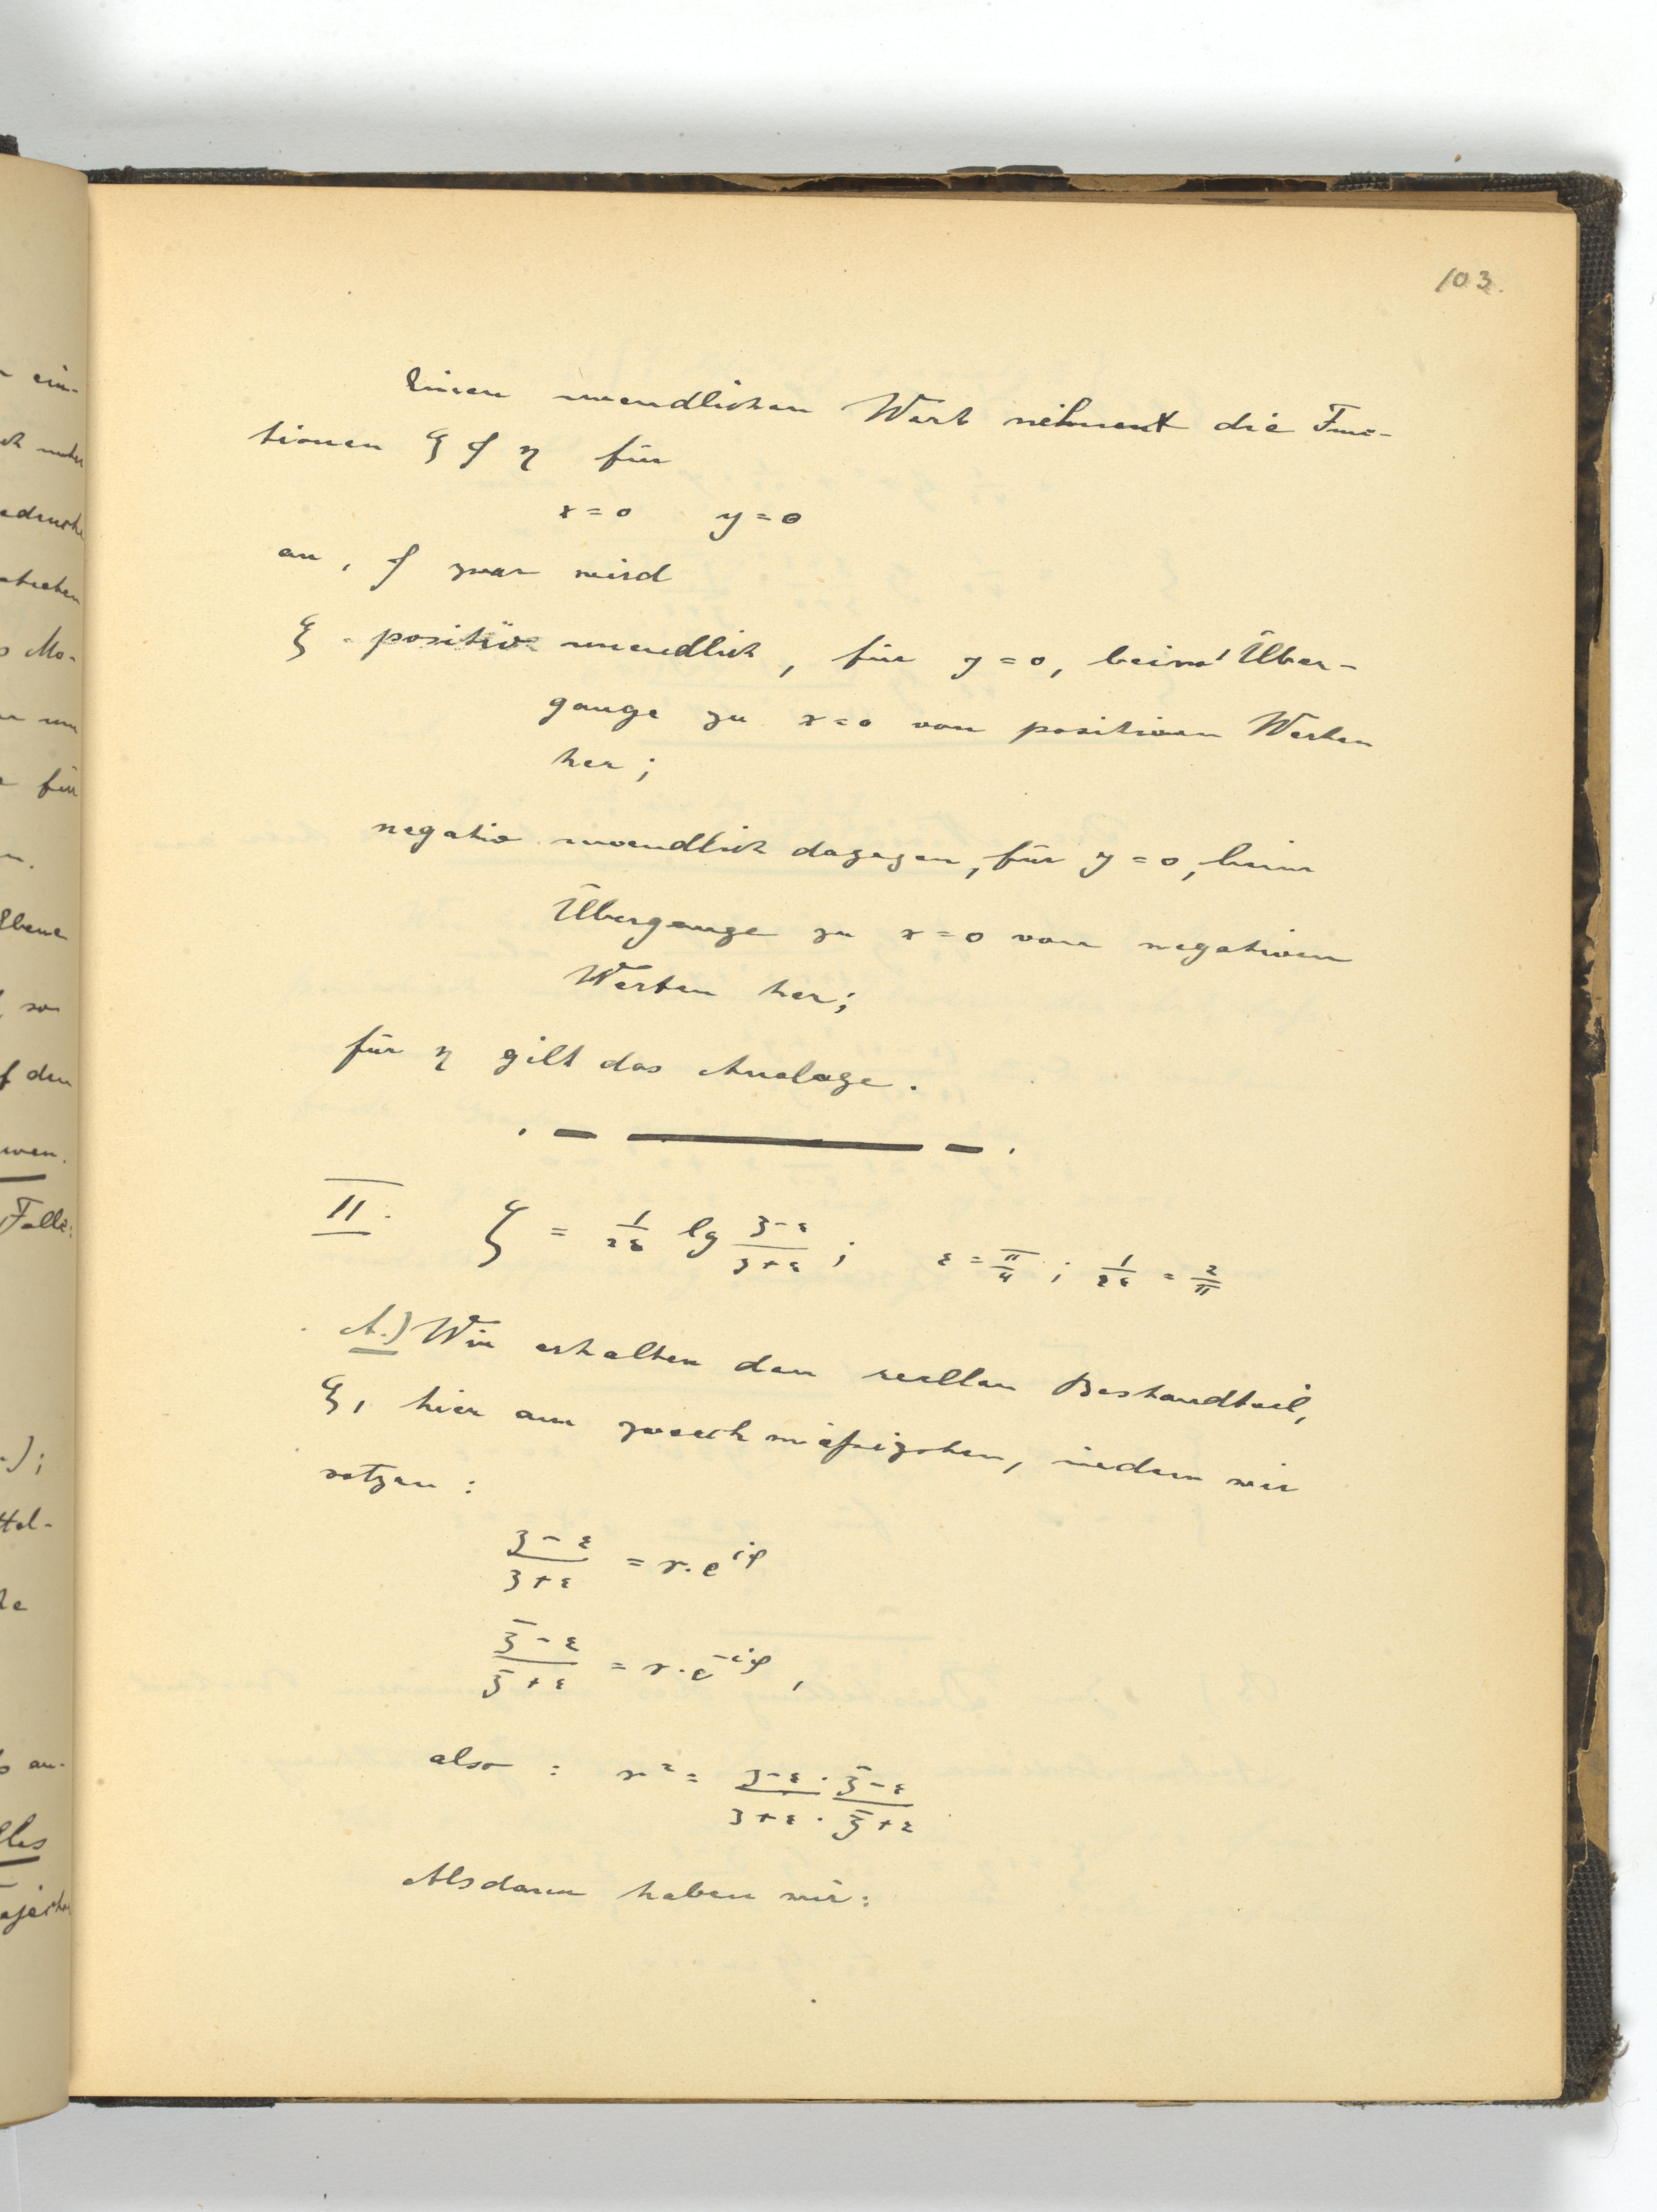 103.
Einen unendlichen Wert nehmen die Func-
tionen ξ & η für
x = 0 y = 0
an, & zwar wird
ξ positiv unendlich, für y = 0, beim Über-
gange zu x = 0 von positiven Werten
her;
negativ unendlich dagegen, für y = 0, beim
Übergange zu x = 0 von negativen
Werten her;
für η gilt das Analoge.
II. ζ = 1/2ε lg z-ε/z+ε ; ε = π/4 ; 1/2ε = 2/π
A.) Wir erhalten den reellen Bestandteil,
ξ, hier am zweckmäßigsten, indem wir
setzen :
z-ε/z+ε = r. e^iφ
z̄-ε/z̄+ε = r. e^-iφ ,
also : r² = z-ε/z+ε · z̄-ε/z̄+ε
Alsdann haben wir:
ein-
Mo-
für
Ebene
so
den
Falle:
an-